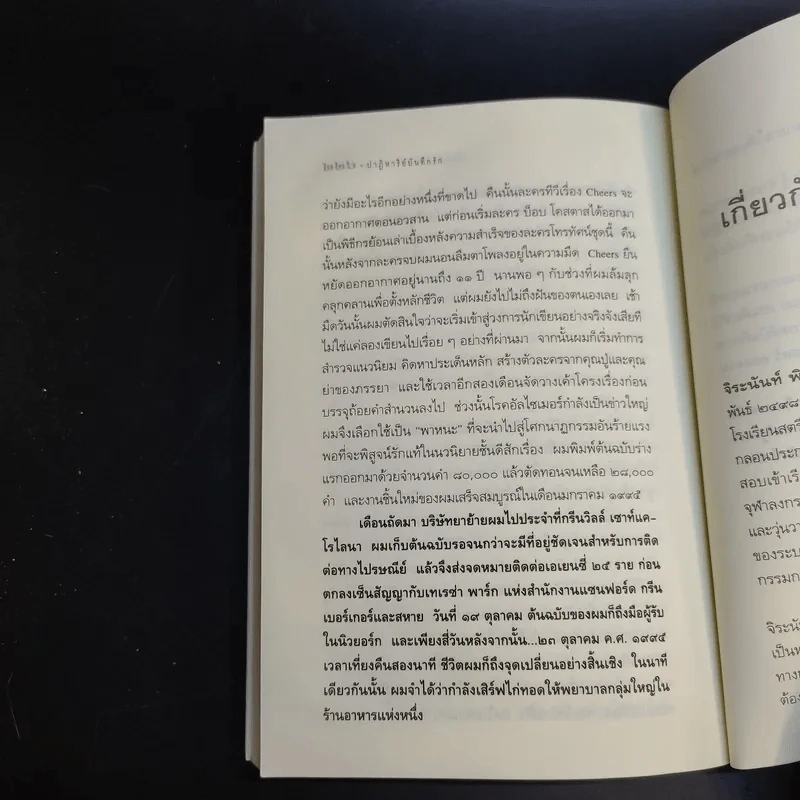 ๒๒๖ • ปาฏิหาริย์บันทึกรัก
ว่ายังมีอะไรอีกอย่างหนึ่งที่ขาดไป คืนนั้นละครทีวีเรื่อง Cheers จะ
ออกอากาศตอนอวสาน แต่ก่อนเริ่มละคร บ็อบ โคสตาสได้ออกมา
เป็นพิธีกรย้อนเล่าเบื้องหลังความสำเร็จของละครโทรทัศน์ชุดนี้ คืน
นั้นหลังจากละครจบผมนอนลืมตาโพลงอยู่ในความมืด Cheers ยืน
หยัดออกอากาศอยู่นานถึง ๑๑ ปี นานพอ ๆ กับช่วงที่ผมล้มลุก
คลุกคลานเพื่อตั้งหลักชีวิต แต่ผมยังไปไม่ถึงฝันของตนเองเลย เช้า
มืดวันนั้นผมตัดสินใจว่าจะเริ่มเข้าสู่วงการนักเขียนอย่างจริงจังเสียที
ไม่ใช่แค่ลองเขียนไปเรื่อย ๆ อย่างที่ผ่านมา จากนั้นผมก็เริ่มทำการ
สำรวจแนวนิยม คิดหาประเด็นหลัก สร้างตัวละครจากคุณปู่และคุณ
ย่าของภรรยา และใช้เวลาอีกสองเดือนจัดวางเค้าโครงเรื่องก่อน
บรรจุถ้อยคำสำนวนลงไป ช่วงนั้นโรคอัลไซเมอร์กำลังเป็นข่าวใหญ่
ผมจึงเลือกใช้เป็น “พาหนะ” ที่จะนำไปสู่โศกนาฏกรรมอันร้ายแรง
พอที่จะพิสูจน์รักแท้ในนวนิยายชั้นดีสักเรื่อง ผมพิมพ์ต้นฉบับร่าง
แรกออกมาด้วยจำนวนคำ ๘๐,๐๐๐ แล้วตัดทอนจนเหลือ ๒๘,๐๐๐
คำ และงานชิ้นใหม่ของผมเสร็จสมบูรณ์ในเดือนมกราคม ๑๙๙๕
เดือนถัดมา บริษัทยาย้ายผมไปประจำที่กรีนวิลล์ เซาท์แค-
โรไลนา ผมเก็บต้นฉบับรอจนกว่าจะมีที่อยู่ชัดเจนสำหรับการติด
ต่อทางไปรษณีย์ แล้วจึงส่งจดหมายติดต่อเอเยนซี่ ๒๕ ราย ก่อน
ตกลงเซ็นสัญญากับเทเรซ่า พาร์ก แห่งสำนักงานแซนฟอร์ด กรีน
เบอร์เกอร์และสหาย วันที่ ๑๙ ตุลาคม ต้นฉบับของผมก็ถึงมือผู้รับ
ในนิวยอร์ก และเพียงสี่วันหลังจากนั้น...๒๓ ตุลาคม ค.ศ. ๑๙๙๕
เวลาเที่ยงคืนสองนาที ชีวิตผมก็ถึงจุดเปลี่ยนอย่างสิ้นเชิง ในนาที
เดียวกันนั้น ผมจำได้ว่ากำลังเสิร์ฟไก่ทอดให้พยาบาลกลุ่มใหญ่ใน
ร้านอาหารแห่งหนึ่ง
เกี่ยวกั
จิระนันท์ พิ
พันธ์ ๒๔๙๘
โรงเรียนสตรี
กลอนประก
สอบเข้าเรี
จุฬาลงกร
และวุ่นวา
ของระบ
กรรมก
จิระนัน
เป็นห
ทางเ
ต้อง